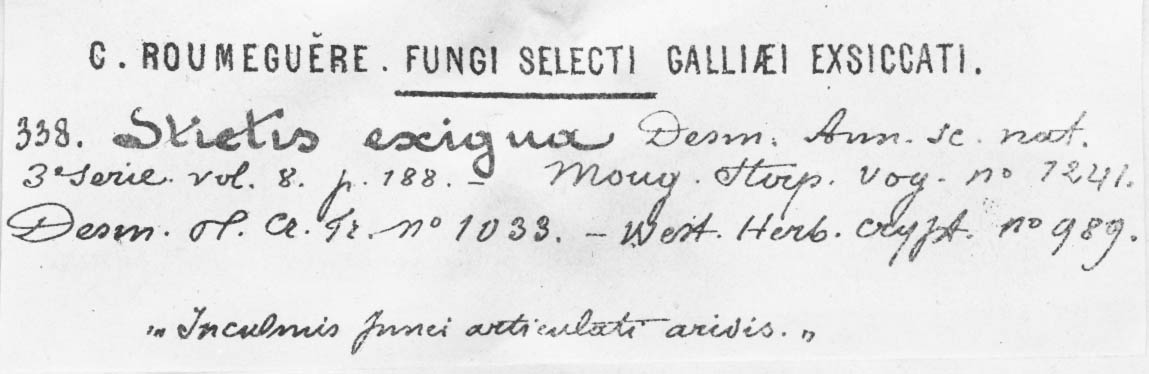 C. ROUMEGUĚRE. FUNGI SELECTI GALLIÆI EXSICCATI.
338. Stictis exigua Desm. Ann. sc. nat.
3e serie. vol. 8. p. 188. – Moug. Stirp. Vog. no 1241.
Desm. Pl. Cr. Fr. no 1033. – West. Herb. crypt. no 989.
„ In culmis Junci articulati aridis. „